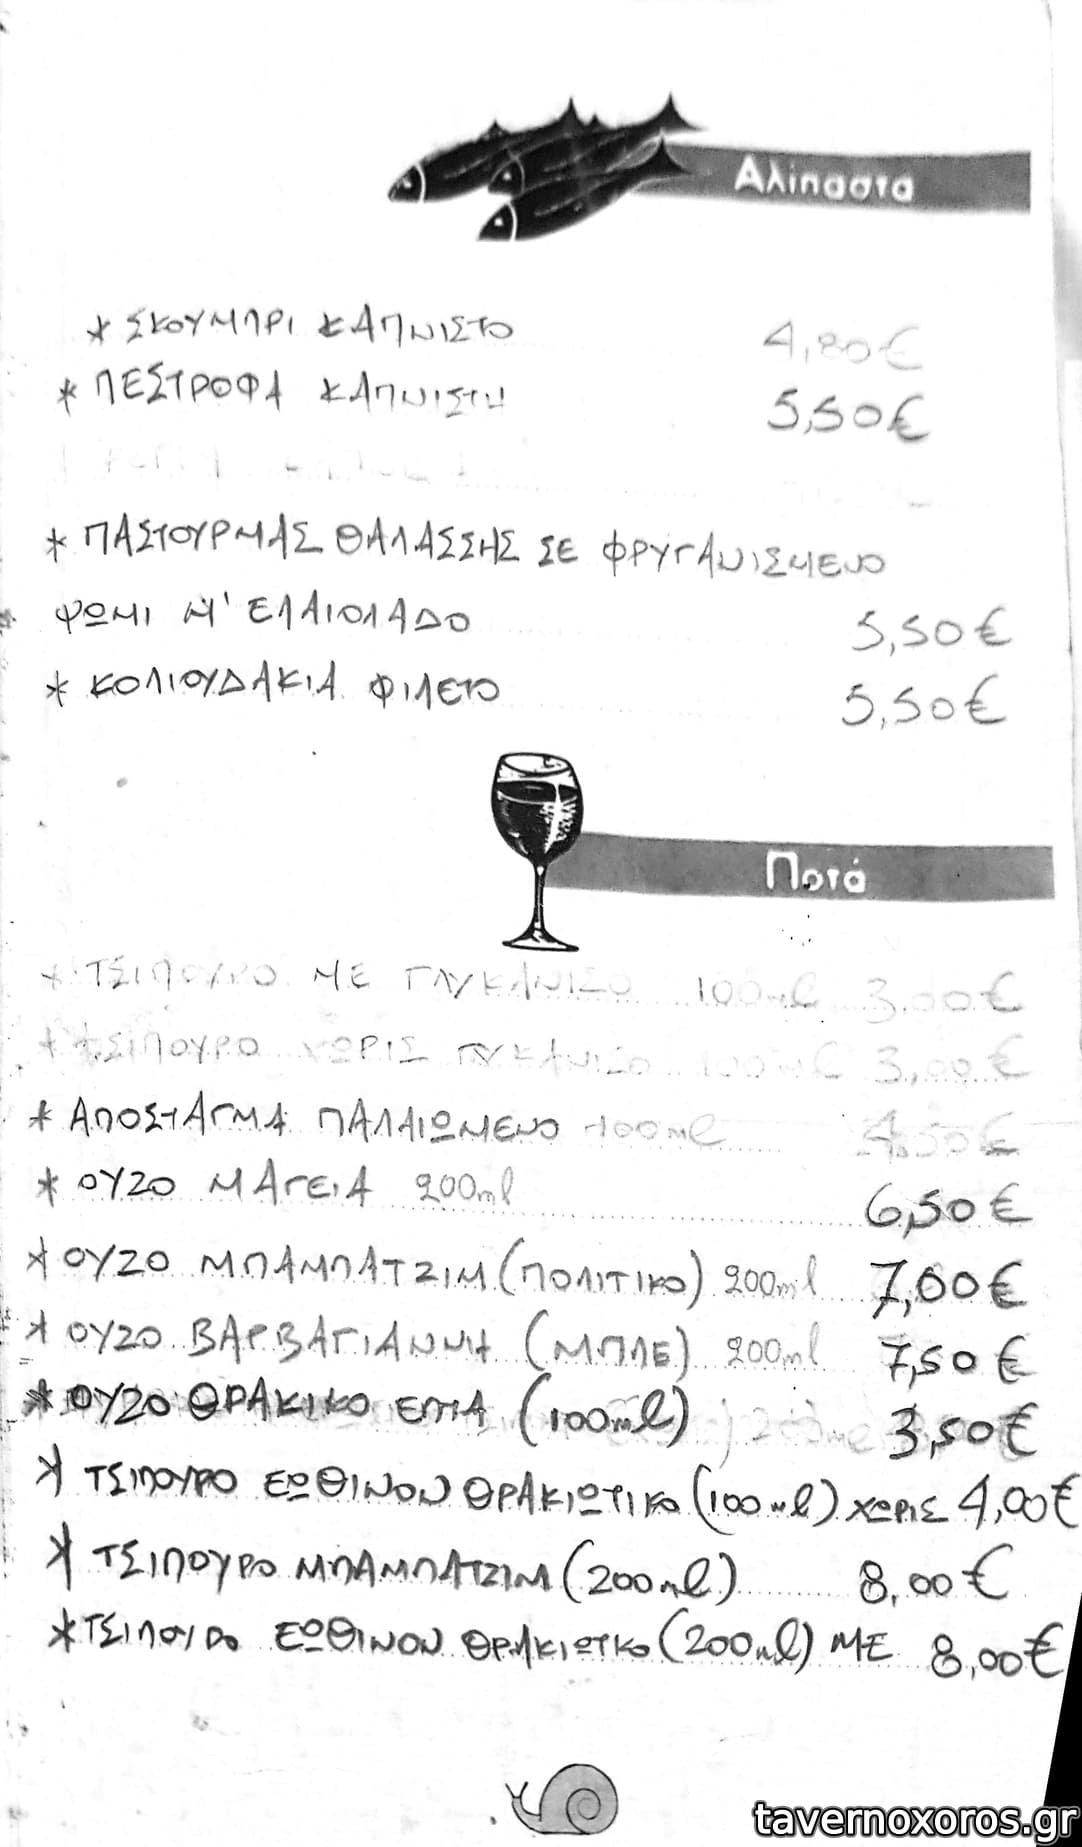 Αλίπαστα
* ΣΚΟΥΜΠΡΙ ΚΑΠΝΙΣΤΟ 4,80€
* ΠΕΣΤΡΟΦΑ ΚΑΠΝΙΣΤΗ 5,50€
* ΠΑΣΤΟΥΡΜΑΣ ΘΑΛΑΣΣΗΣ ΣΕ ΦΡΥΓΑΝΙΣΜΕΝΟ
ΨΩΜΙ Μ' ΕΛΑΙΟΛΑΔΟ 5,50€
* ΚΟΛΙΟΥΔΑΚΙΑ ΦΙΛΕΤΟ 5,50€
Ποτά
* ΤΣΙΠΟΥΡΟ ΜΕ ΓΛΥΚΑΝΙΣΟ 100ml 3,00€
* ΤΣΙΠΟΥΡΟ ΧΩΡΙΣ ΓΛΥΚΑΝΙΣΟ 100ml 3,00€
* ΑΠΟΣΤΑΓΜΑ ΠΑΛΑΙΩΜΕΝΟ 100ml 4,50€
* ΟΥΖΟ ΜΑΓΕΙΑ 200ml 6,50€
* ΟΥΖΟ ΜΠΑΜΠΑΤΖΙΜ (ΠΟΛΙΤΙΚΟ) 200ml 7,00€
* ΟΥΖΟ ΒΑΡΒΑΓΙΑΝΝΗ (ΜΠΛΕ) 200ml 7,50€
* ΟΥΖΟ ΘΡΑΚΙΚΟ ΕΠΙΑ (100ml) 3,50€
* ΤΣΙΠΟΥΡΟ ΕΩΘΙΝΟΝ ΘΡΑΚΙΩΤΙΚΟ (100ml) ΧΩΡΙΣ 4,00€
* ΤΣΙΠΟΥΡΟ ΜΠΑΜΠΑΤΖΙΜ (200ml) 8,00€
* ΤΣΙΠΟΥΡΟ ΕΩΘΙΝΟΝ ΘΡΑΚΙΩΤΚΟ (200ml) ΜΕ 8,00€
tavernoxoros.gr